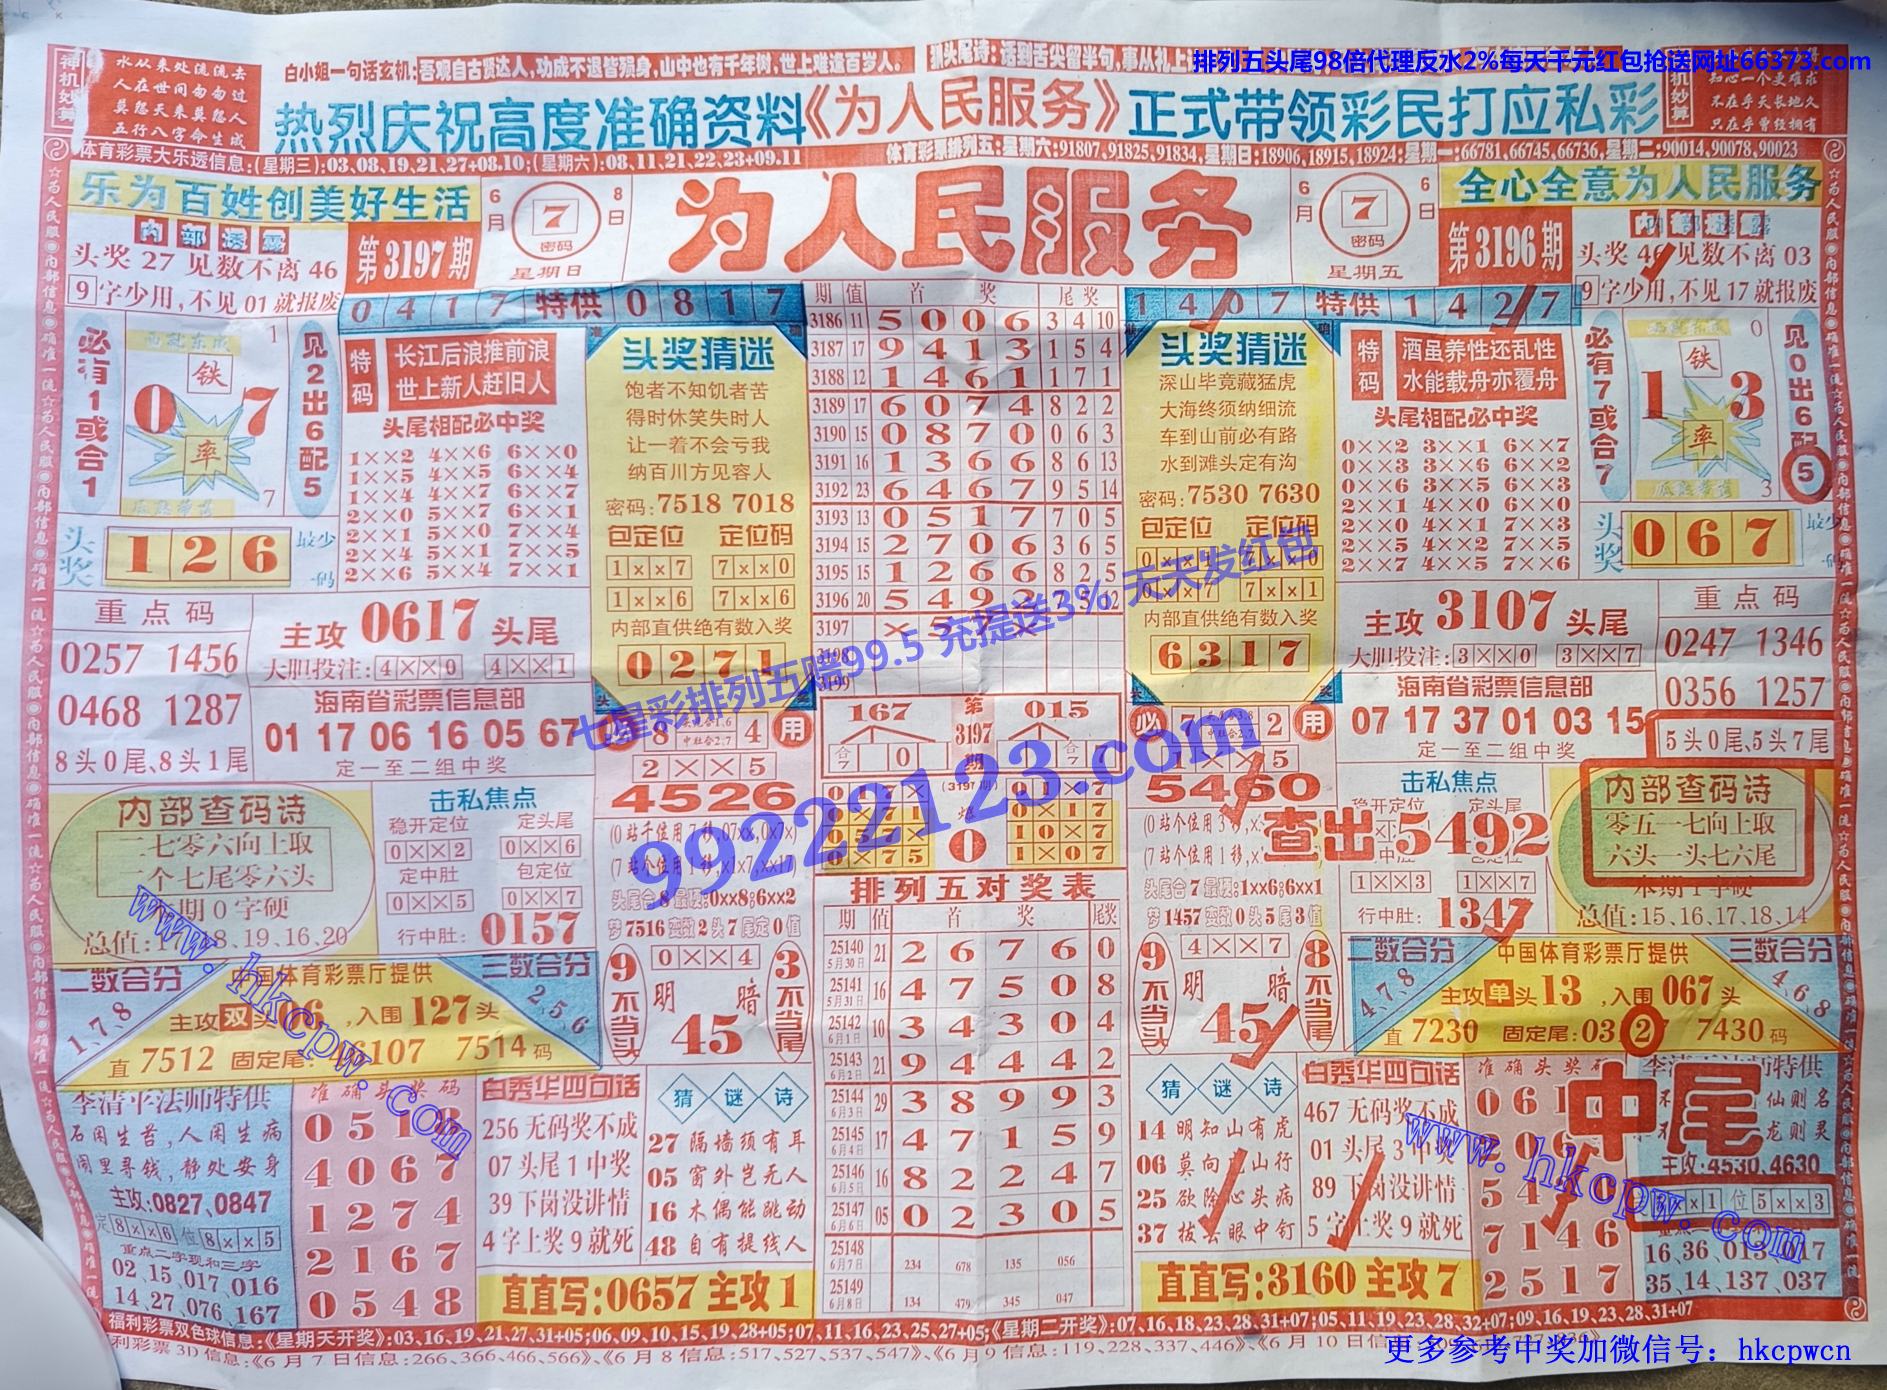 排列五头尾98倍代理反水2%每天千元红包抢送网址66373.com
神机妙算
水从来处流流去
人在世间匆匆过
莫怨天来莫怨人
五行八字命生成
白小姐一句话玄机:吾观自古贤达人,功成不退皆殒身,山中也有千年树,世上难逢百岁人。
热烈庆祝高度准确资料《为人民服务》正式带领彩民打应私彩
知心一个更难求
不在乎天长地久
只在乎曾经拥有
体育彩票大乐透信息:(星期三):03,08,19,21,27+08,10;(星期六):08,11,21,22,23+09,11
体育彩票排列五:星期六:91807,91825,91834,星期日:18906,18915,18924;星期一:66781,66745,66736,星期二:90014,90078,90023
乐为百姓创美好生活
内部透露
头奖 27 见数不离 46
9字少用,不见 01 就报废
第3197期
6月8日
7
密码
星期日
为人民服务
6月6日
7
密码
星期五
第3196期
全心全意为人民服务
内部透露
头奖 46 见数不离 03
9字少用,不见 17 就报废
0417 特供 0817
必有1或合1
铁
0 7
率
1
7
见2出6配5
头奖 126 最少一码
特码
长江后浪推前浪
世上新人赶旧人
头尾相配必中奖
1××2 4××6 6××0
1××5 4××5 6××4
1××4 4××7 6××1
2××0 5××7 6××1
2××1 5××0 7××4
2××4 5××1 7××5
2××6 5××4 7××1
头奖猜谜
饱者不知饥者苦
得时休笑失时人
让一着不会亏我
纳百川方见容人
密码:7518 7018
包定位 定位码
1××7 7××0
1××6 7××6
内部直供绝有数入奖
0271
期 值 首 奖 尾奖
3186 11 5 0 0 6 3 4 10
3187 17 9 4 1 3 1 5 4
3188 12 1 4 6 1 1 7 1
3189 17 6 0 7 4 8 2 2
3190 15 0 8 7 0 0 6 3
3191 16 1 3 6 6 8 6 13
3192 23 6 4 6 7 9 5 14
3193 13 0 5 1 7 7 0 5
3194 15 2 7 0 6 3 6 5
3195 15 1 2 6 6 8 2 5
3196 20 5 4 9 2
3197
3198
3199
1407 特供 1427
头奖猜迷
深山毕竟藏猛虎
大海终须纳细流
车到山前必有路
水到滩头定有沟
密码:7530 7630
包定位 定位码
7××1
内部直供绝有数入奖
6317
特码
酒虽养性还乱性
水能载舟亦覆舟
头尾相配必中奖
0××2 3××1 6××7
0××3 3××6 6××2
0××6 3××5 6××5
2××1 4××0 6××3
2××0 4××1 7××3
2××5 4××2 7××6
2××7 4××5 7××2
必有7或合7
铁
1 3
率
0
3
见0出6配5
头奖 067
重点码
0257 1456
0468 1287
8头0尾、8头1尾
主攻 0617 头尾
大胆投注: 4××0 4××1
海南省彩票信息部
01 17 06 16 05 67
定一至二组中奖
七星彩排列五赔99.5 充提送3% 天天发红包
99222123.com
主攻 3107 头尾
大胆投注: 3××0 3××7
海南省彩票信息部
07 17 37 01 03 15
定一至二组中奖
重点码
0247 1346
0356 1257
5头0尾、5头7尾
8 4 用
2××5
4526
167 第3197期 015
必 7 2 用
5460
查出5492
内部查码诗
二七零六向上取
二个七尾零六头
本期0字硬
击私焦点
稳开定位 定头尾
0××2 0××6
定中肚 包定位
0××5 0××7
行中肚: 0157
击私焦点
1××3 1××7
行中肚: 1347
内部查码诗
零五一七向上取
六头一头七六尾
本期1字硬
总值:15,16,17,18,14
头尾合8最硬:0xx8;6xx2
梦7516变数2头7尾定0值
头尾合7最硬:1xx6;6xx1
梦1457变数0头5尾3值
二数合分
1,7,8
中国体育彩票厅提供
主攻双头06,入围127头
直 7512 固定尾:46107 7514码
三数合分
2,5,6
9不当头
0××4
明 暗
45
3不当尾
排列五对奖表
期 值 首 奖 尾奖
25140 5月30日 21 2 6 7 6 0
25141 5月31日 16 4 7 5 0 8
25142 6月1日 10 3 4 3 0 4
25143 6月2日 21 9 4 4 4 2
25144 6月3日 29 3 8 9 9 3
25145 6月4日 17 4 7 1 5 9
25146 6月5日 16 8 2 2 4 7
25147 6月6日 05 0 2 3 0 5
25148 6月7日 234 678 135 056
25149 6月8日 134 479 345 047
9不当头
4××7
明 暗
45
8不当尾
二数合分
4,7,8
中国体育彩票厅提供
主攻单头13,入围067头
直 7230 固定尾:03 2 7430码
三数合分
4,6,8
李清平法师特供
石闲生苔,人闲生病
闹里寻钱,静处安身
主攻:0827、0847
定8××6 位8××5
重点二字现和三字
02、15、017、016
14、27、076、167
准确头奖码
0518
4067
1274
2167
0548
白秀华四句话
256 无码奖不成
07 头尾 1 中奖
39 下岗没讲情
4 字上奖 9 就死
猜谜诗
27 隔墙须有耳
05 窗外岂无人
16 木偶能跳动
48 自有提线人
直直写:0657 主攻 1
猜谜诗
14 明知山有虎
06 莫向虎山行
25 欲除心头病
37 拔去眼中钉
白秀华四句话
467 无码奖不成
01 头尾 3 中奖
89 下岗没讲情
5 字上奖 9 就死
直直写:3160 主攻 7
准确头奖码
7146
2517
中尾
主攻:4530、4630
位5××3
16、36、013、017
35、14、137、037
www.hkcpw.com
www.hkcpw.com
福利彩票双色球信息:《星期天开奖》:03,16,19,21,27,31+05;06,09,10,15,19,28+05;07,11,16,23,25,27+05;《星期二开奖》:07,16,18,23,28,31+07;05,11,19,23,28,32+07;09,16,19,23,28,31+07
福利彩票3D信息:《6月7日信息:266,366,466,566》、《6月8日信息:517,527,537,547》、《6月9日信息:119,228,337,446》、《6月10日信息
更多参考中奖加微信号:hkcpwcn